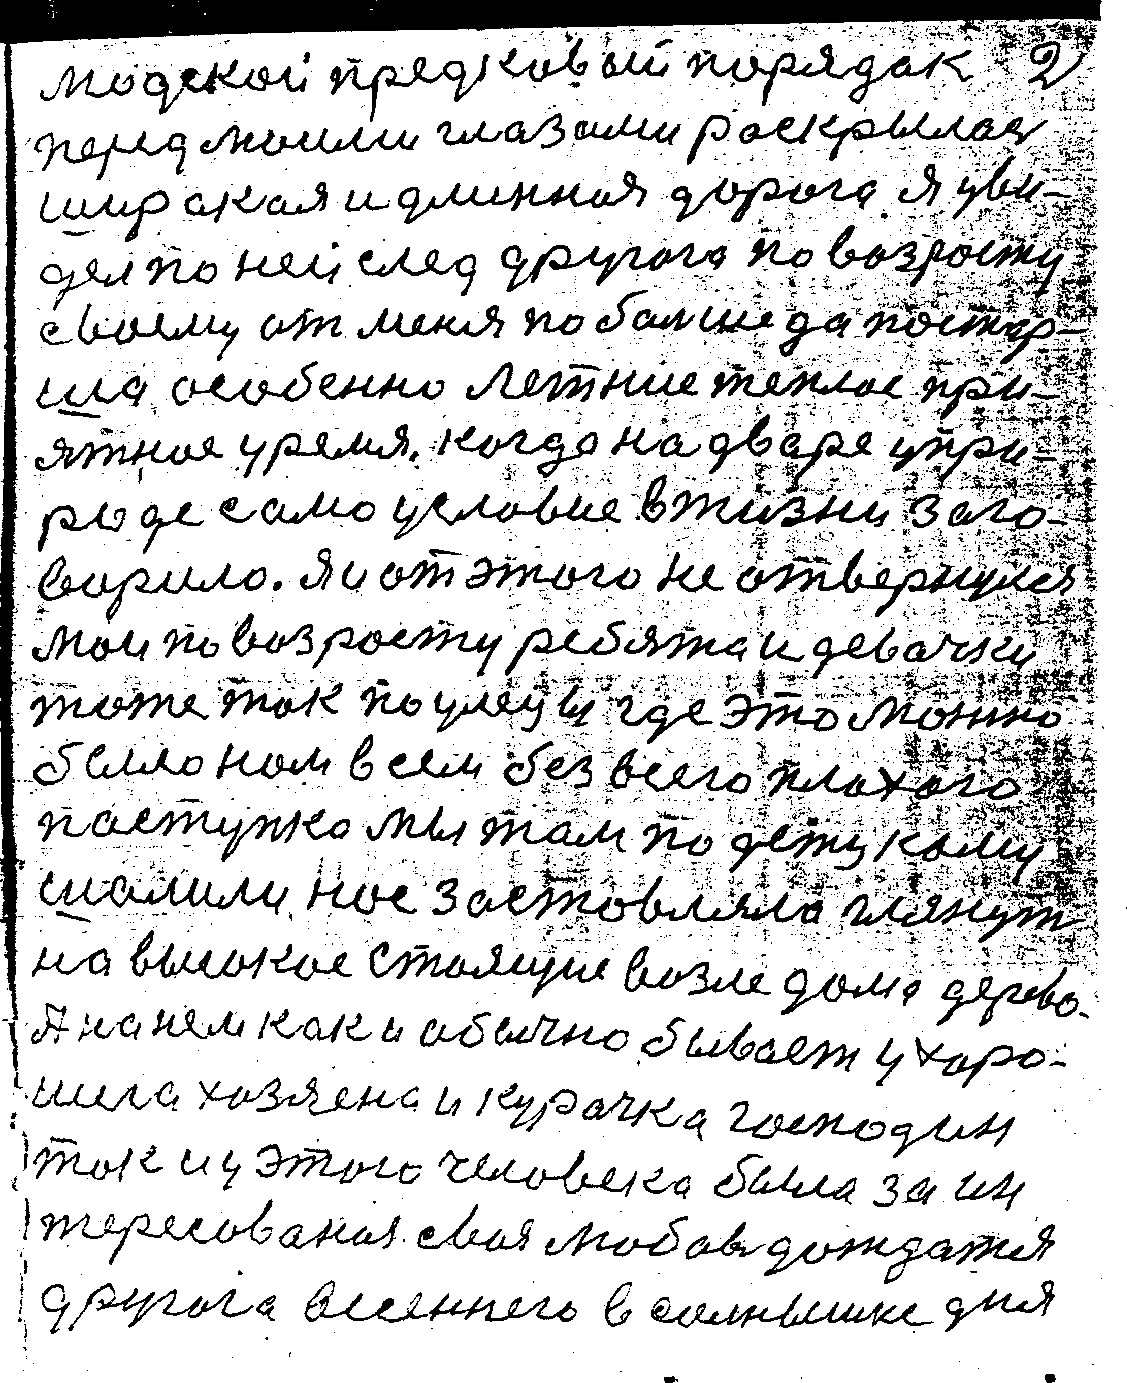 людской предковый порядак 2
перед моими глазами раскрылась
широкая и длинная дорога я уви-
дел по ней след другога по возросту
своему от меня по болше да постар-
ша особенно летние теплое при-
ятное уремя. когда на дваре упри-
роде само условие в жизни заго-
ворило. Я и от этого не отвернулся
мои по возросту ребята и девачки
тоже так по улецы где это можно
было нам всем без всего плохого
паступка мы там по детцкому
шалили нас заставляла глянут
на высокое стоящие возле дома дерево.
А на нем как и обычно бывает у харо-
шега хозяена и курачка господин
так и у этого человека была за ин
тересованая своя любовь дождатся
другога весеннего в солнышке дня